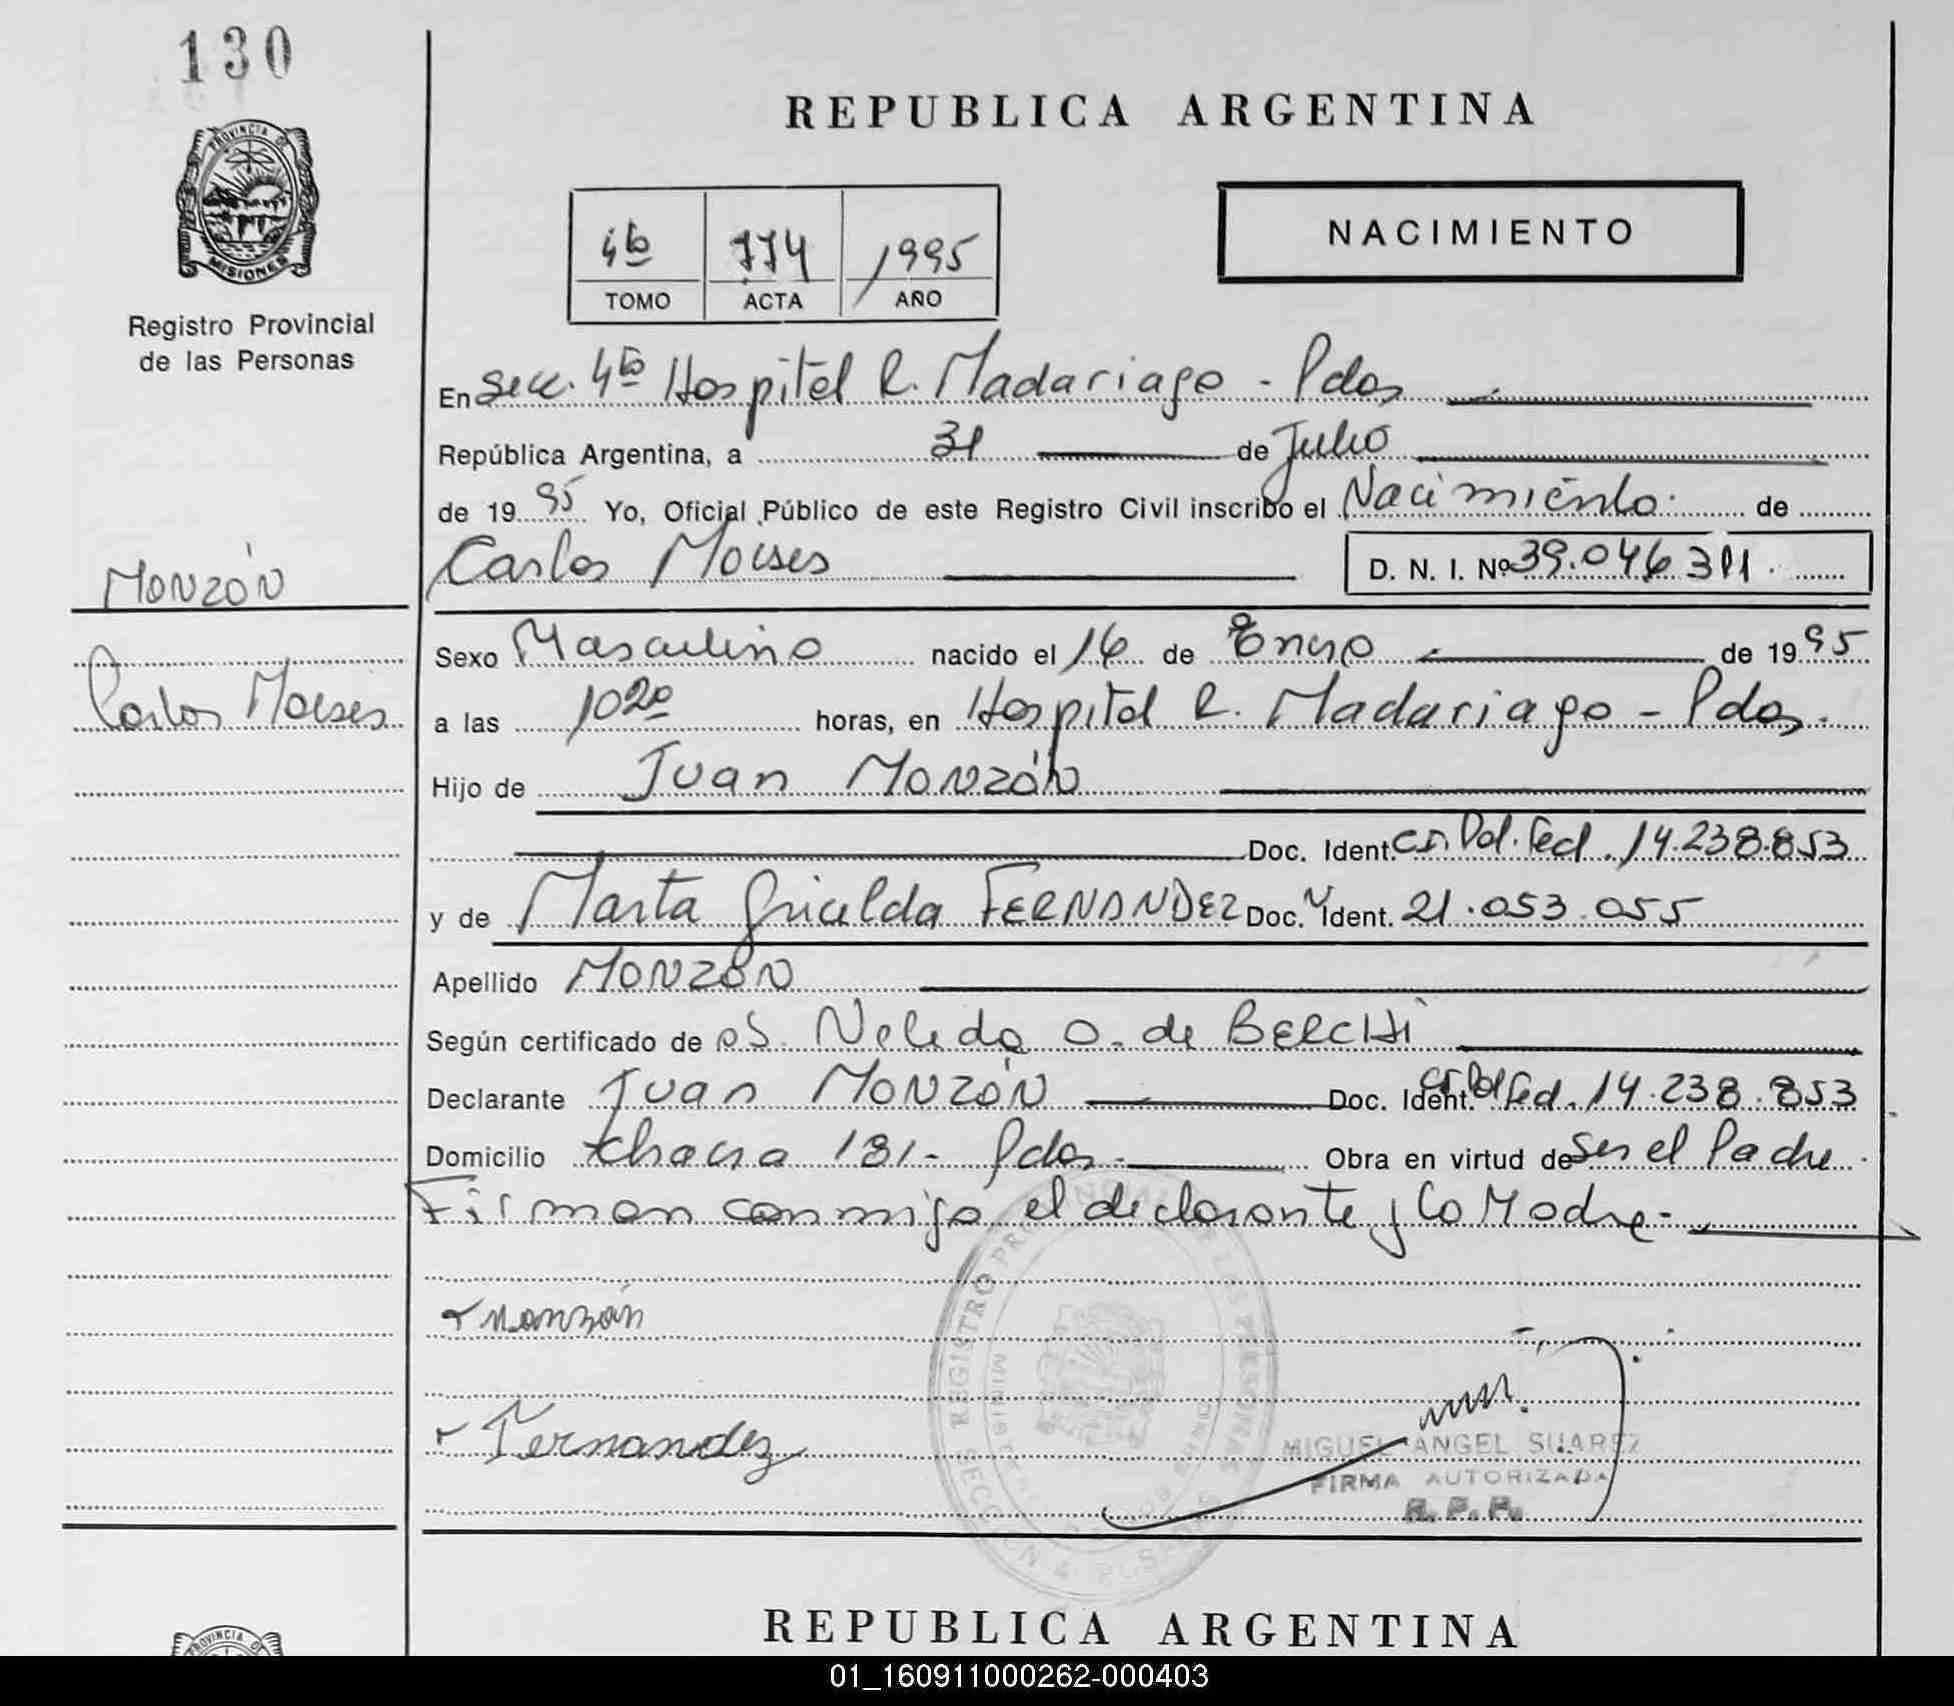 130
PROVINCIA DE
MISIONES
Registro Provincial
de las Personas
MONZÓN
Carlos Moises
REPUBLICA ARGENTINA
NACIMIENTO
4to 774 1995
TOMO ACTA AÑO
En Secc. 4to Hospital R. Madariaga - Pdas
República Argentina, a 31 de Julio
de 19 95 Yo, Oficial Público de este Registro Civil inscribo el Nacimiento de
Carlos Moises D. N. I. Nº 39.046.311
Sexo Masculino nacido el 16 de Enero de 19 95
a las 1020 horas, en Hospital R. Madariaga - Pdas.
Hijo de Juan MONZÓN
Doc. Ident. CI. Pol. Fed. 14.238.853
y de Marta Gricelda FERNANDEZ Doc. Ident. 21.053.055
Apellido MONZÓN
Según certificado de Nelida O. de BERCHI
Declarante Juan MONZÓN Doc. Ident. CI. Pol Fed. 14.238.853
Domicilio Chacra 131 - Pdas - Obra en virtud de Ser el Padre
Firman conmigo el declarante y la Madre -
Monzón
Fernandez
REGISTRO PROVINCIAL DE LAS PERSONAS
SECCION 4 POSADAS
MIGUEL ANGEL SUAREZ
FIRMA AUTORIZADA
R. P. P.
REPUBLICA ARGENTINA
PROVINCIA DE
01_160911000262-000403